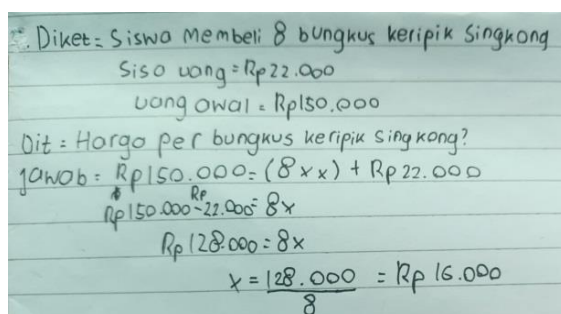 Diket = Siswa Membeli 8 bungkus keripik Singkong
Siso uang = Rp22.000
uang awal = Rp150.000
Dit = Hargo per bungkus keripik Singkong?
Jawab = Rp150.000 = (8 x x) + Rp22.000
Rp150.000 - Rp22.000 = 8x
Rp128.000 = 8x
x = 128.000 / 8 = Rp 16.000